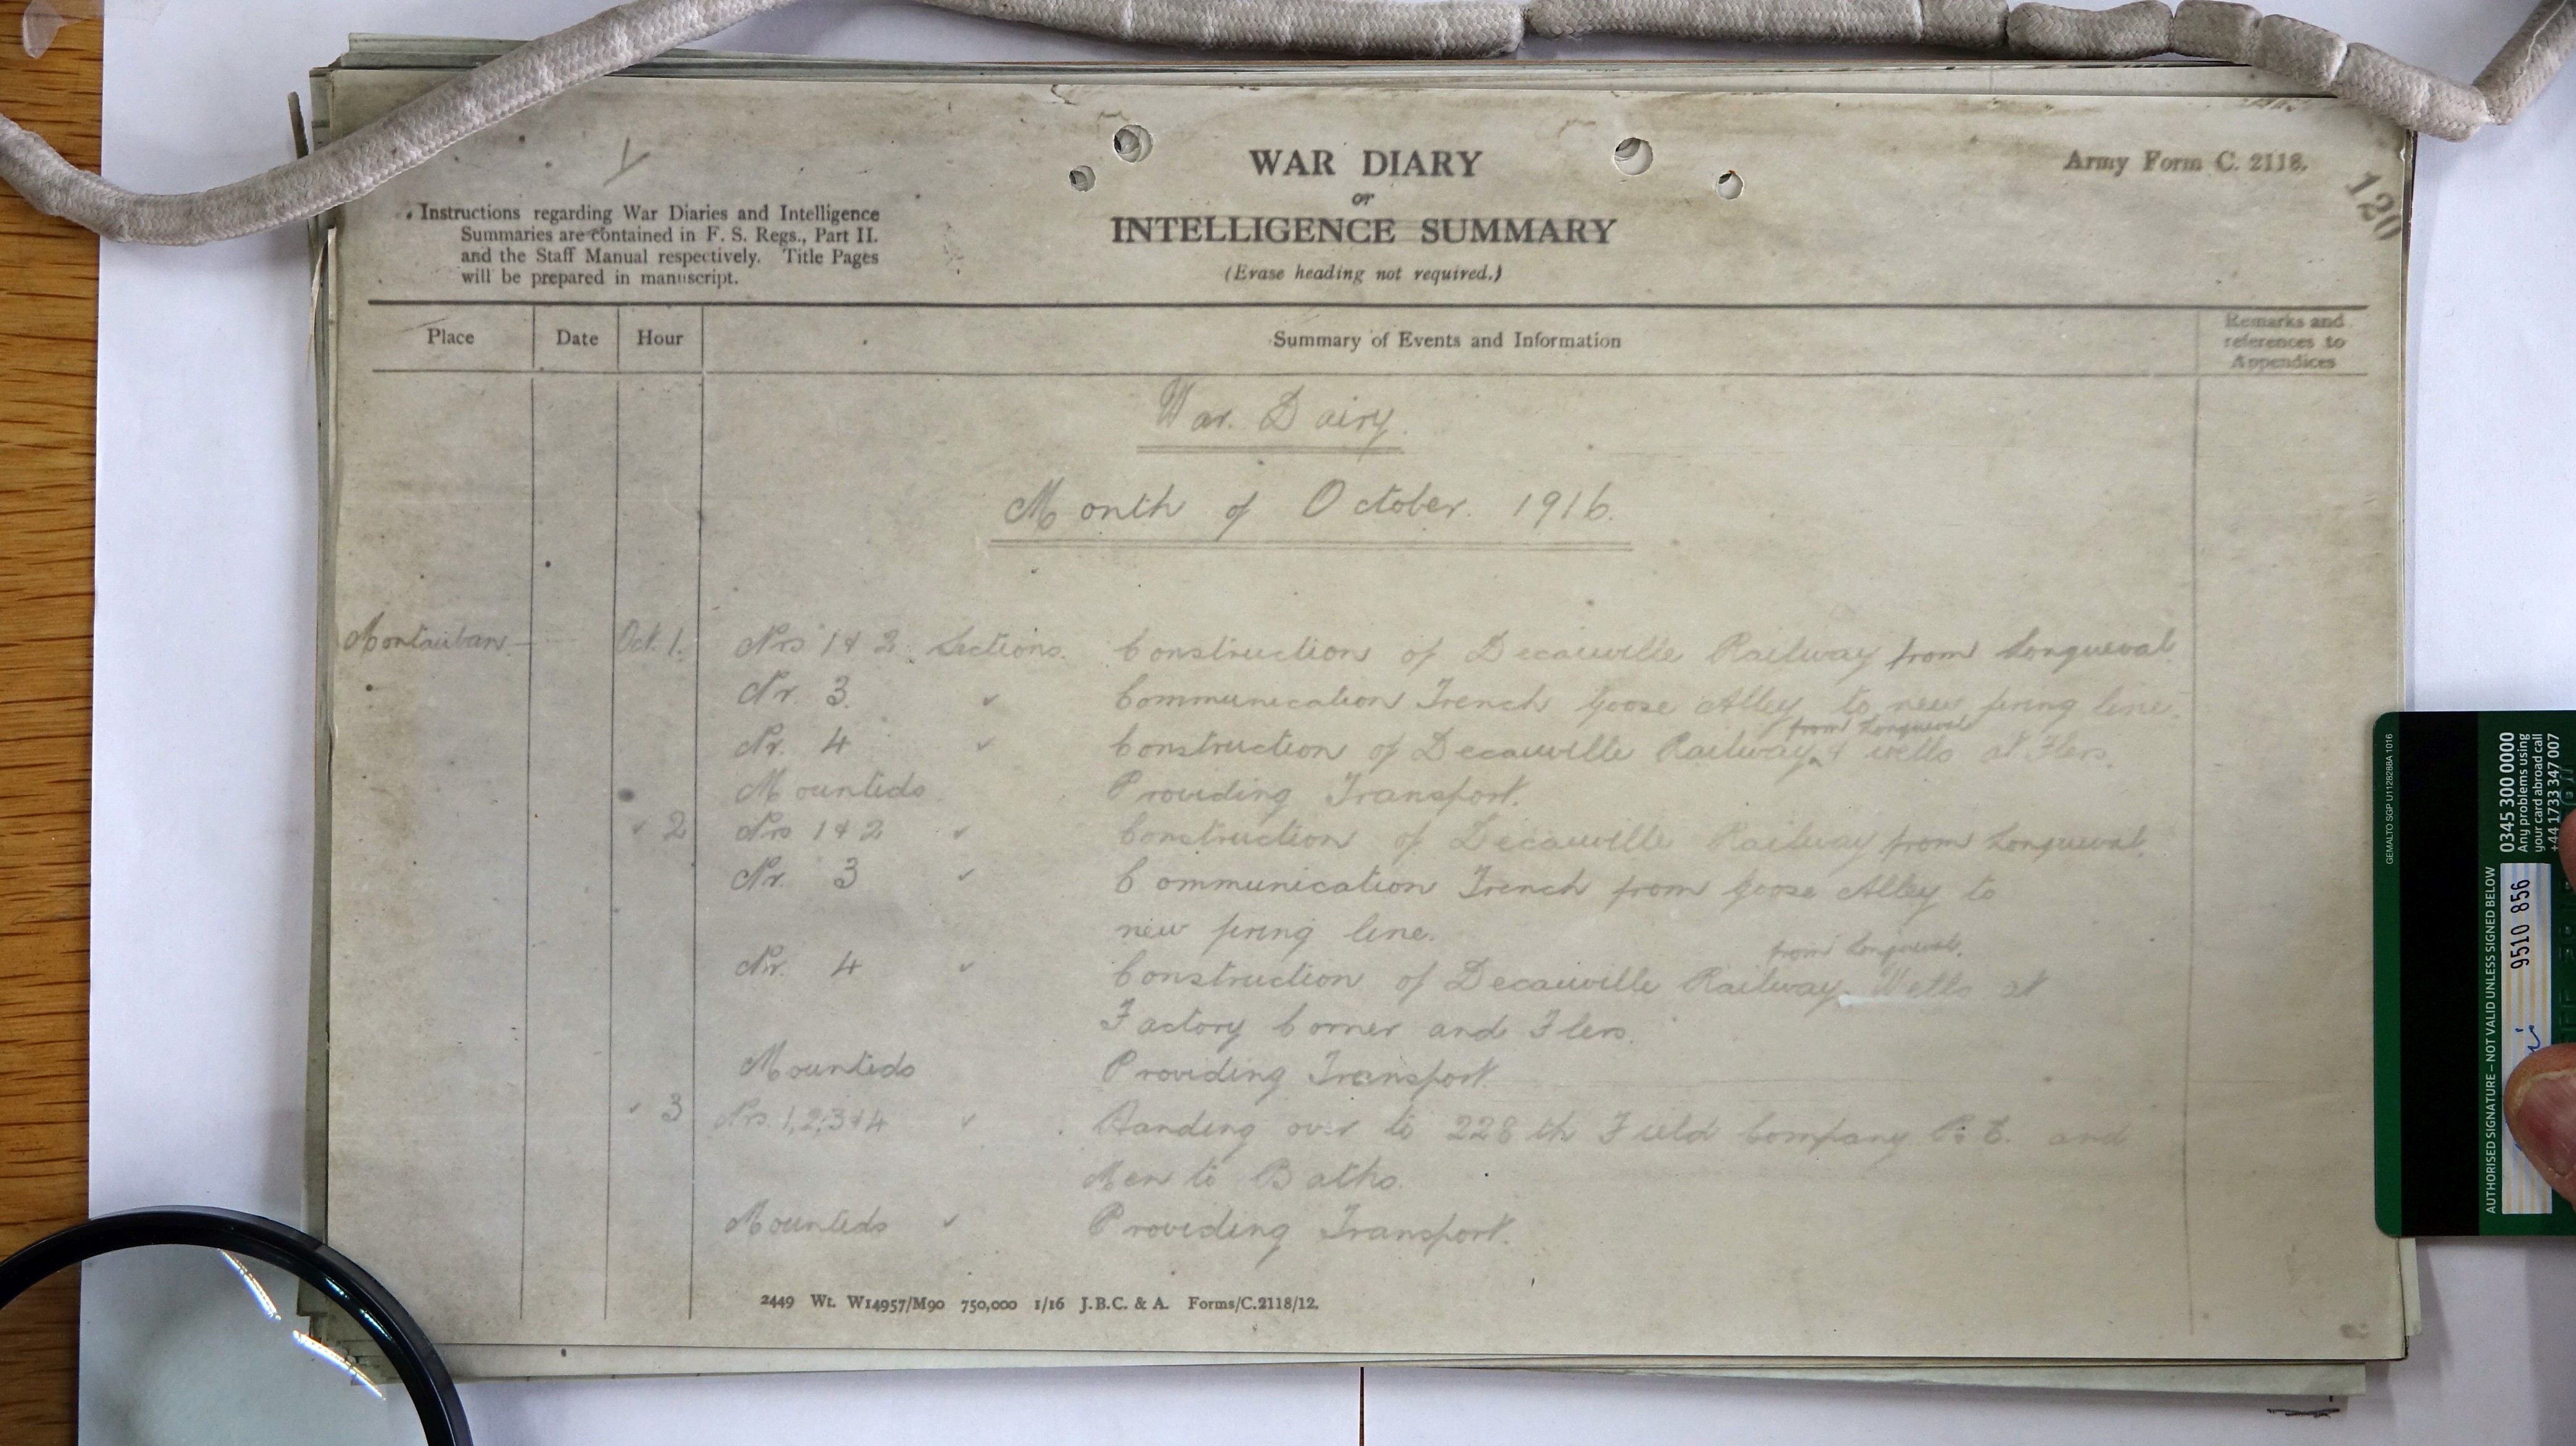 WAR DIARY
or
INTELLIGENCE SUMMARY
(Erase heading not required.)
Army Form C. 2118.
120
Instructions regarding War Diaries and Intelligence
Summaries are contained in F. S. Regs., Part II.
and the Staff Manual respectively. Title Pages
will be prepared in manuscript.
Place Date Hour Summary of Events and Information Remarks and references to Appendices
War. Dairy.
Month of October. 1916.
Montauban. Oct. 1. Nrs 1 & 2 Sections. Construction of Decauville Railway from Longueval.
Nr. 3. " Communication Trench Goose Alley to new firing line.
from Longueval
Nr. 4 " Construction of Decauville Railway & wells at Flers.
Mounteds. Providing Transport.
" 2 Nrs 1 & 2 " Construction of Decauville Railway from Longueval.
Nr. 3 " Communication Trench from Goose Alley to
new firing line.
from Longueval.
Nr. 4 " Construction of Decauville Railway. Wells at
Factory Corner and Flers.
Mounteds Providing Transport.
" 3 Nrs. 1,2,3 & 4 " Handing over to 228 th Field Company R. E. and
Men to Baths.
Mounteds " Providing Transport.
2449 Wt. W14957/M90 750,000 1/16 J.B.C. & A. Forms/C.2118/12.
GEMALTO SGP U1128288A 1016
0345 300 0000
Any problems using
your card abroad call
+44 1733 347 007
AUTHORISED SIGNATURE – NOT VALID UNLESS SIGNED BELOW
9510 856